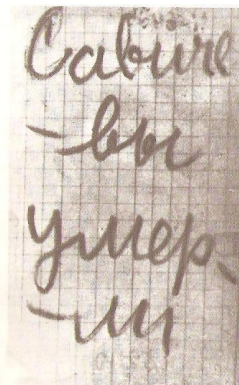 Савиче
-вы
умер-
-ли